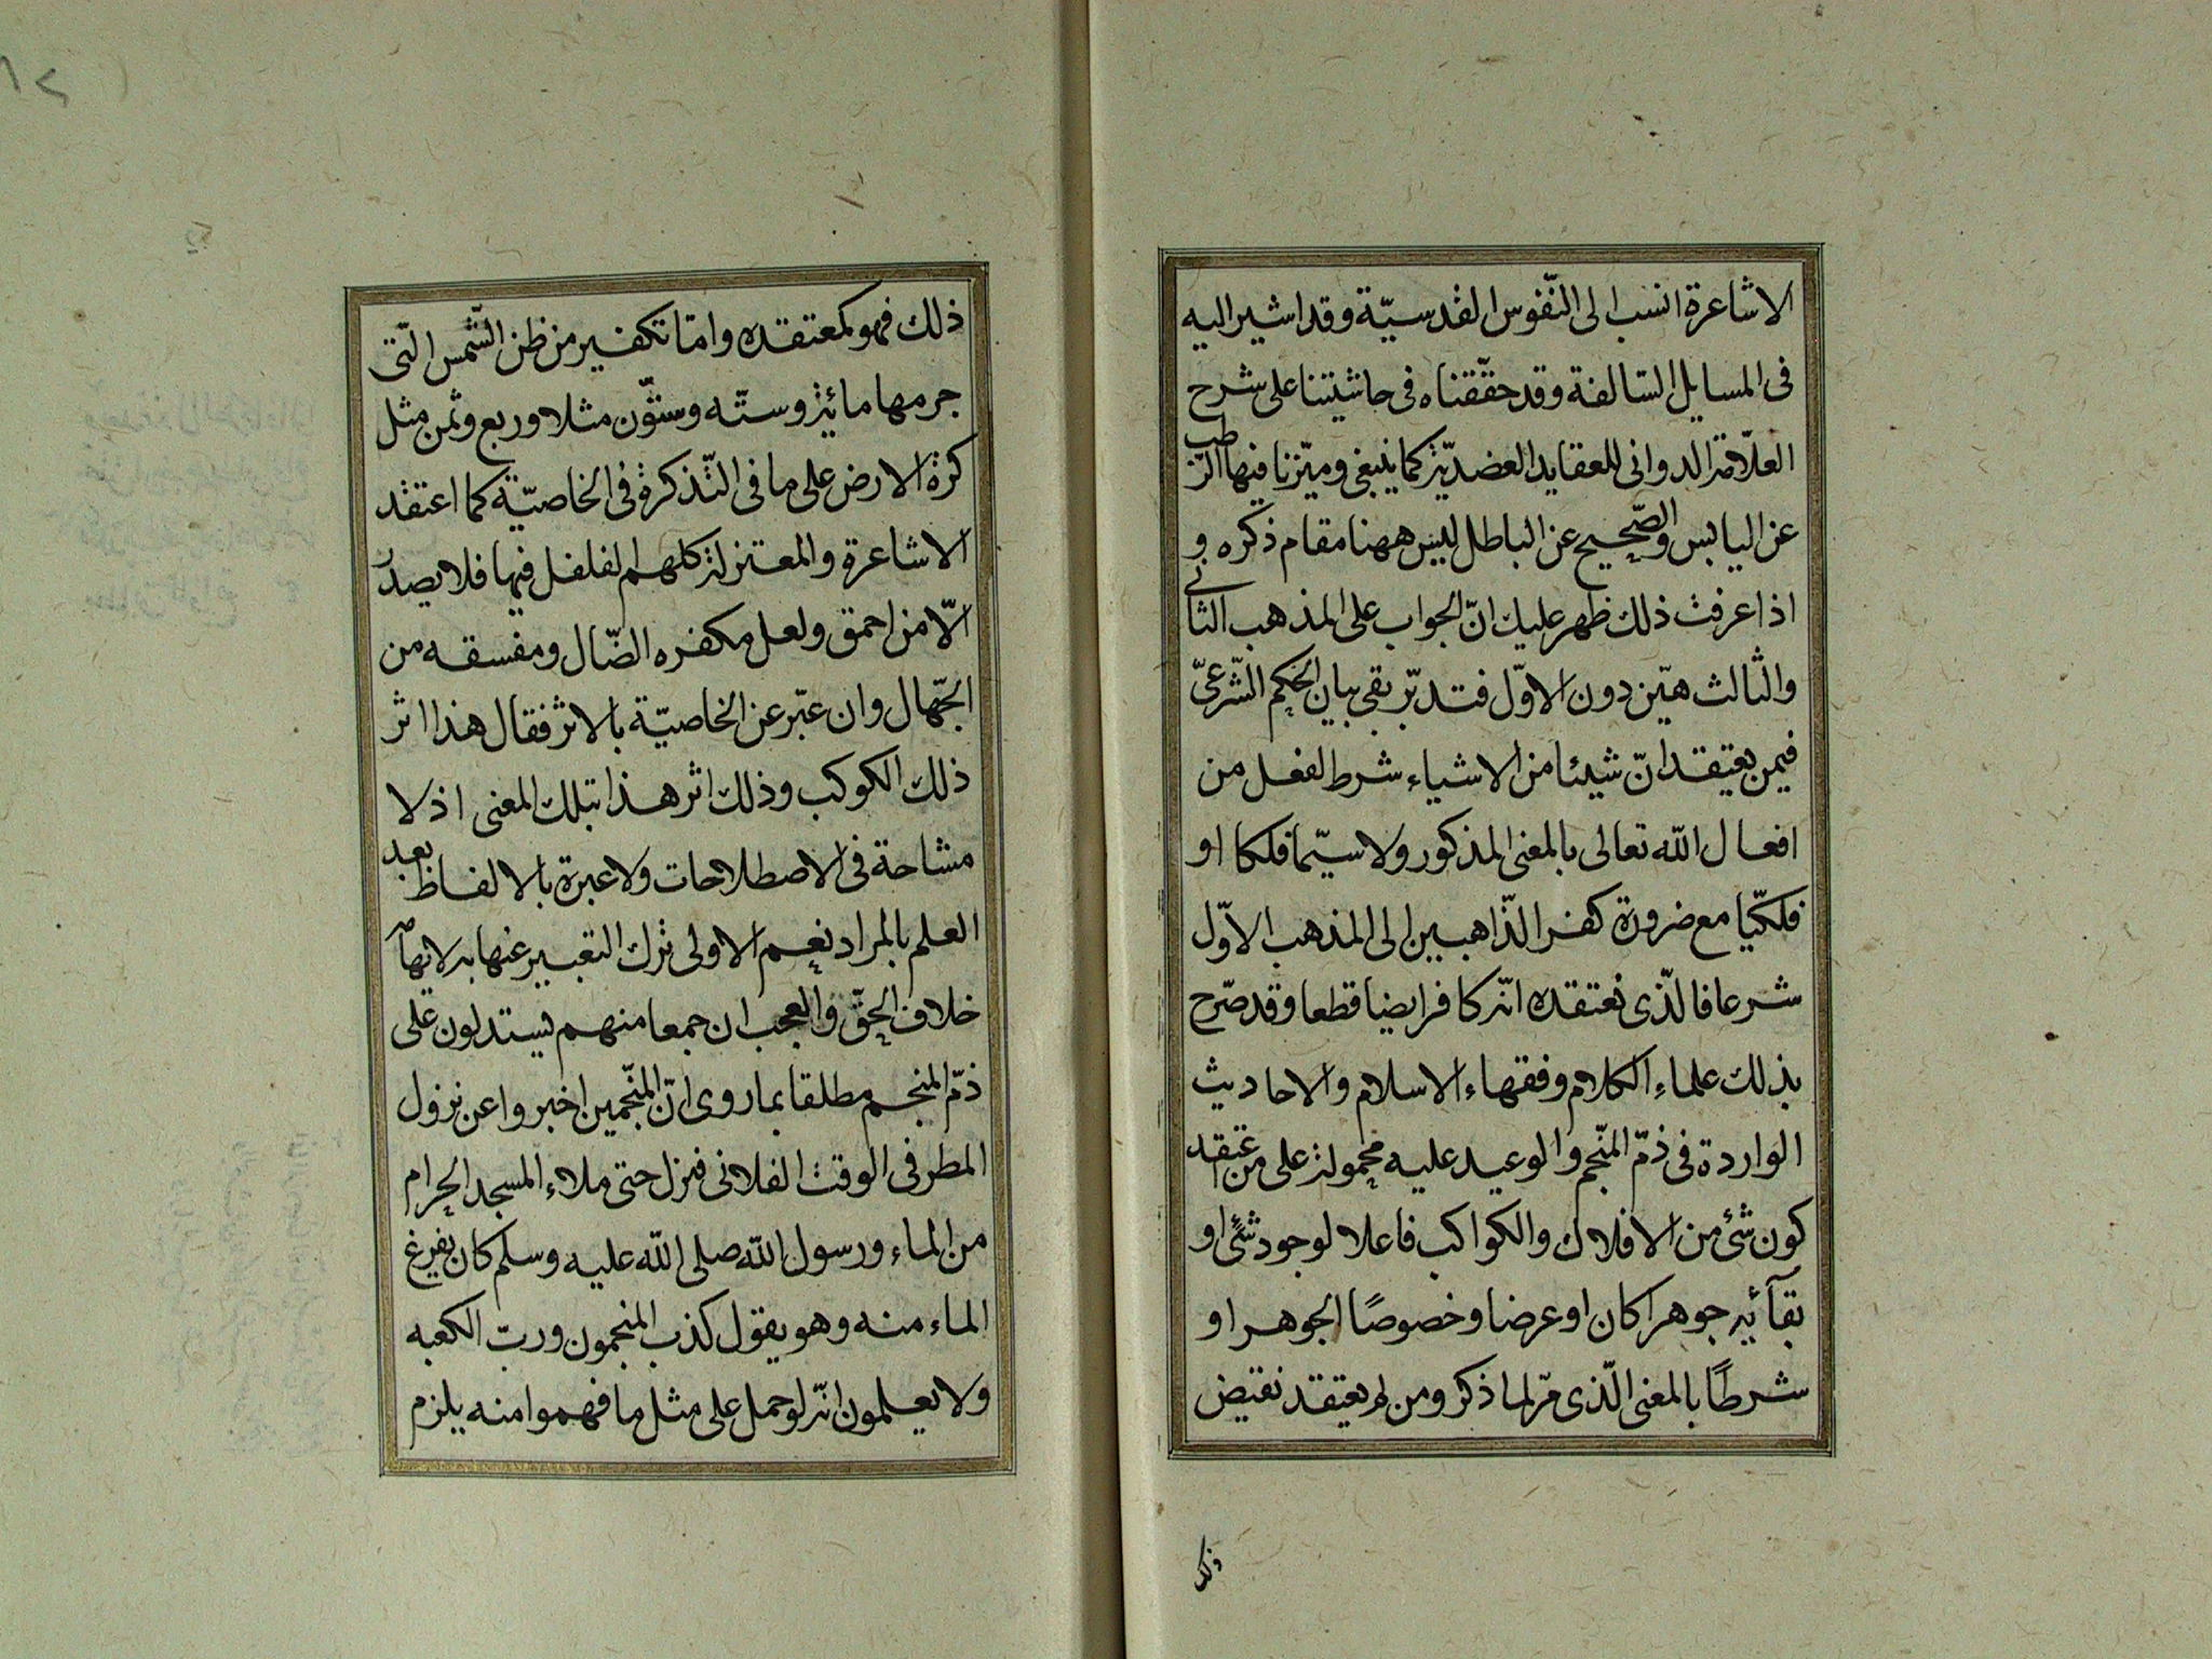 الاشاعرة انسب الى النّفوس القدسيّة وقد اشير اليه
فى المسايل السّالفة وقد حقّقناه فى حاشيتنا على شرح
العلّامة الدوانى للعقايد العضديّة كما ينبغى وميّزنا فيها الرّطب
عن اليابس والصّحيح عن الباطل ليس ههنا مقام ذكره و
اذا عرفت ذلك ظهر عليك انّ الجواب على المذهب الثانى
والثالث هيّن دون الاوّل فتدبّر بقى بيان الحكم الشّرعىّ
فيمن يعتقد انّ شيئا من الاشياء شرط لفعل من
افعال الله تعالى بالمعنى المذكور ولا سيّما فلكا او
فلكيّا مع ضرورة كفر الذّاهبين الى المذهب الاوّل
شرعا فالّذى نعتقده انّه كافر ايضا قطعا وقد صرّح
بذلك علماء الكلام وفقهاء الاسلام والاحاديث
الواردة فى ذمّ المنّجم والوعيد عليه محمولة على من يعتقد
كون شئ من الافلاك والكواكب فاعلا لوجود شئ او
بقآئه جوهرا كان او عرضا وخصوصًا الجوهر او
شرطًا بالمعنى الّذى مرّ لما ذكر ومن لم يعتقد نقيض
ذلك
ذلك فهو كمعتقده وامّا تكفير من ظن الشّمس الّتى
جرمها مائة وستّه وستّون مثلا وربع وثمن مثل
كرة الارض على ما فى التّذكرة فى الخاصيّة كما اعتقد
الاشاعرة والمعتزلة كلهم لفلفل فيها فلا يصدر
الّا من احمق ولعل مكفره الضّال ومفسقه من
الجّهال وان عبّر عن الخاصيّة بالاثر فقال هذا اثر
ذلك الكوكب وذلك اثر هذا بتلك المعنى اذ لا
مشاحة فى الاصطلاحات ولا عبرة بالالفاظ بعد
العلم بالمراد نعم الاولى ترك التعبير عنها به لايهامه
خلاف الحقّ والعجب ان جمعا منهم يستدلون على
ذمّ المنجم مطلقا بما روى انّ المنّجمين اخبروا عن نزول
المطر فى الوقت الفلانى فنزل حتى ملاء المسجد الحرام
من الماء ورسول الله صلى الله عليه وسلم كان يفرغ
الماء منه وهو يقول كذب المنجمون وربّ الكعبه
ولا يعلمون انّه لو حمل على مثل ما فهموا منه يلزم